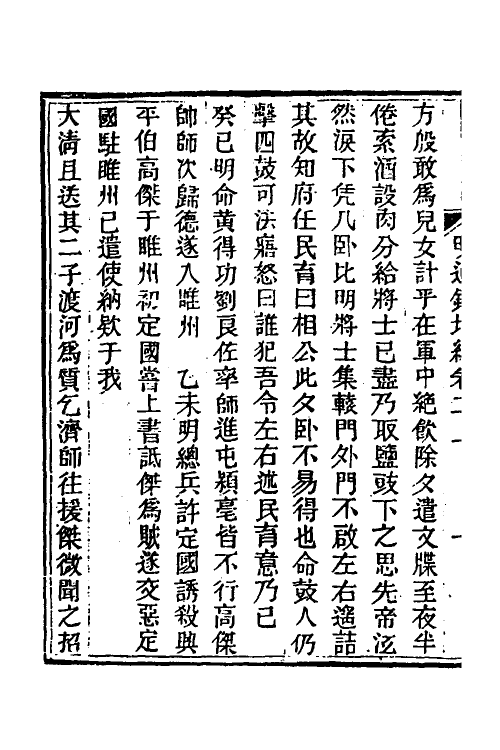 方殷敢爲兒女計乎在軍中絶飮除夕遣文牒至夜半
倦索酒設肉分給將士已盡乃取鹽豉下之思先帝泫
然淚下凭几卧比明將士集轅門外門不啟左右遙詰
其故知府任民育曰相公此夕卧不易得也命鼓人仍
擊四鼓可法寤怒曰誰犯吾令左右述民育意乃已
癸巳明命黃得功劉良佐率師進屯潁亳皆不行高傑
帥師次歸德遂入睢州　乙未明總兵許定國誘殺興
平伯高傑于睢州初定國嘗上書詆傑爲賊遂交惡定
國駐睢州已遣使納欵于我
大淸且送其二子渡河爲質乞濟師往援傑微聞之招